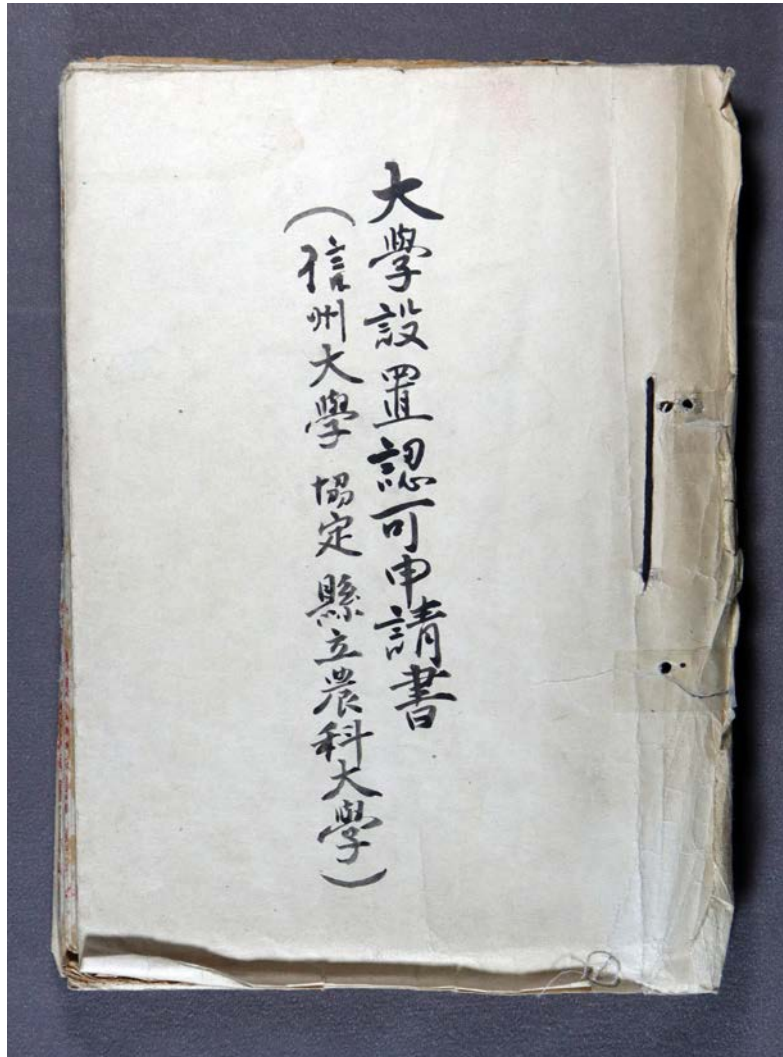 大學設置認可申請書
(信州大學 協定 縣立農科大學)